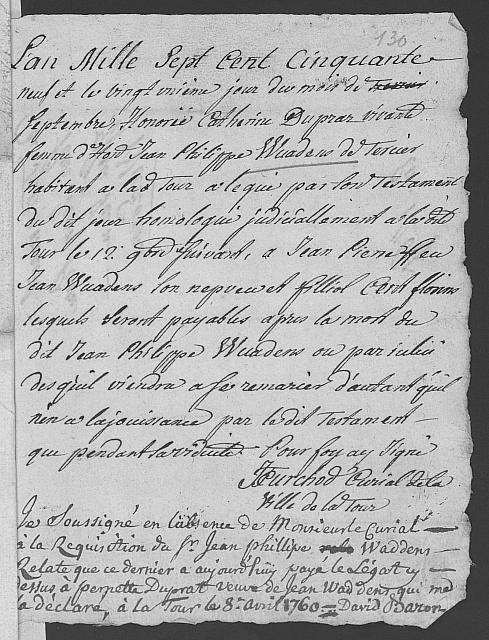 130
L'an Mille Sept Cent Cinquante
neuf et le vingtunième jour du mois de
Septembre, Honorée Catherine Dupraz vivante
femme d'Hon.d Jean Philippe Wuadens de Tercier
habitant a lad Tour a legué par son Testament
du dit jour homologué judiciallement a la dte
Tour le 12.e 9bre Suivant, a Jean Pierre ffeu
Jean Wuadens son nepveu et filliol Cent florins
lesquels Seront payables aprés la mort du
dit Jean Philippe Wuadens ou par iceluÿ
des qu'il viendra a se remarier d'autant qu'il
n'en a la jouissance par le dit Testament
que pendant la viduité. Pour foy ay Signé
FCurchod Curial de la
Ville de la Tour
Je Soussigné en l'absence de Monsieur le Curial
à la Requisition du Sr. Jean Phillipe Waddens
Relate que ce dernier a aujourd'huy payé le Légat cy
essus à pernette Duprat Veuve de Jean Waddens, qui me
a déclaré, à la Tour le 8e. Avril 1760 David Baron